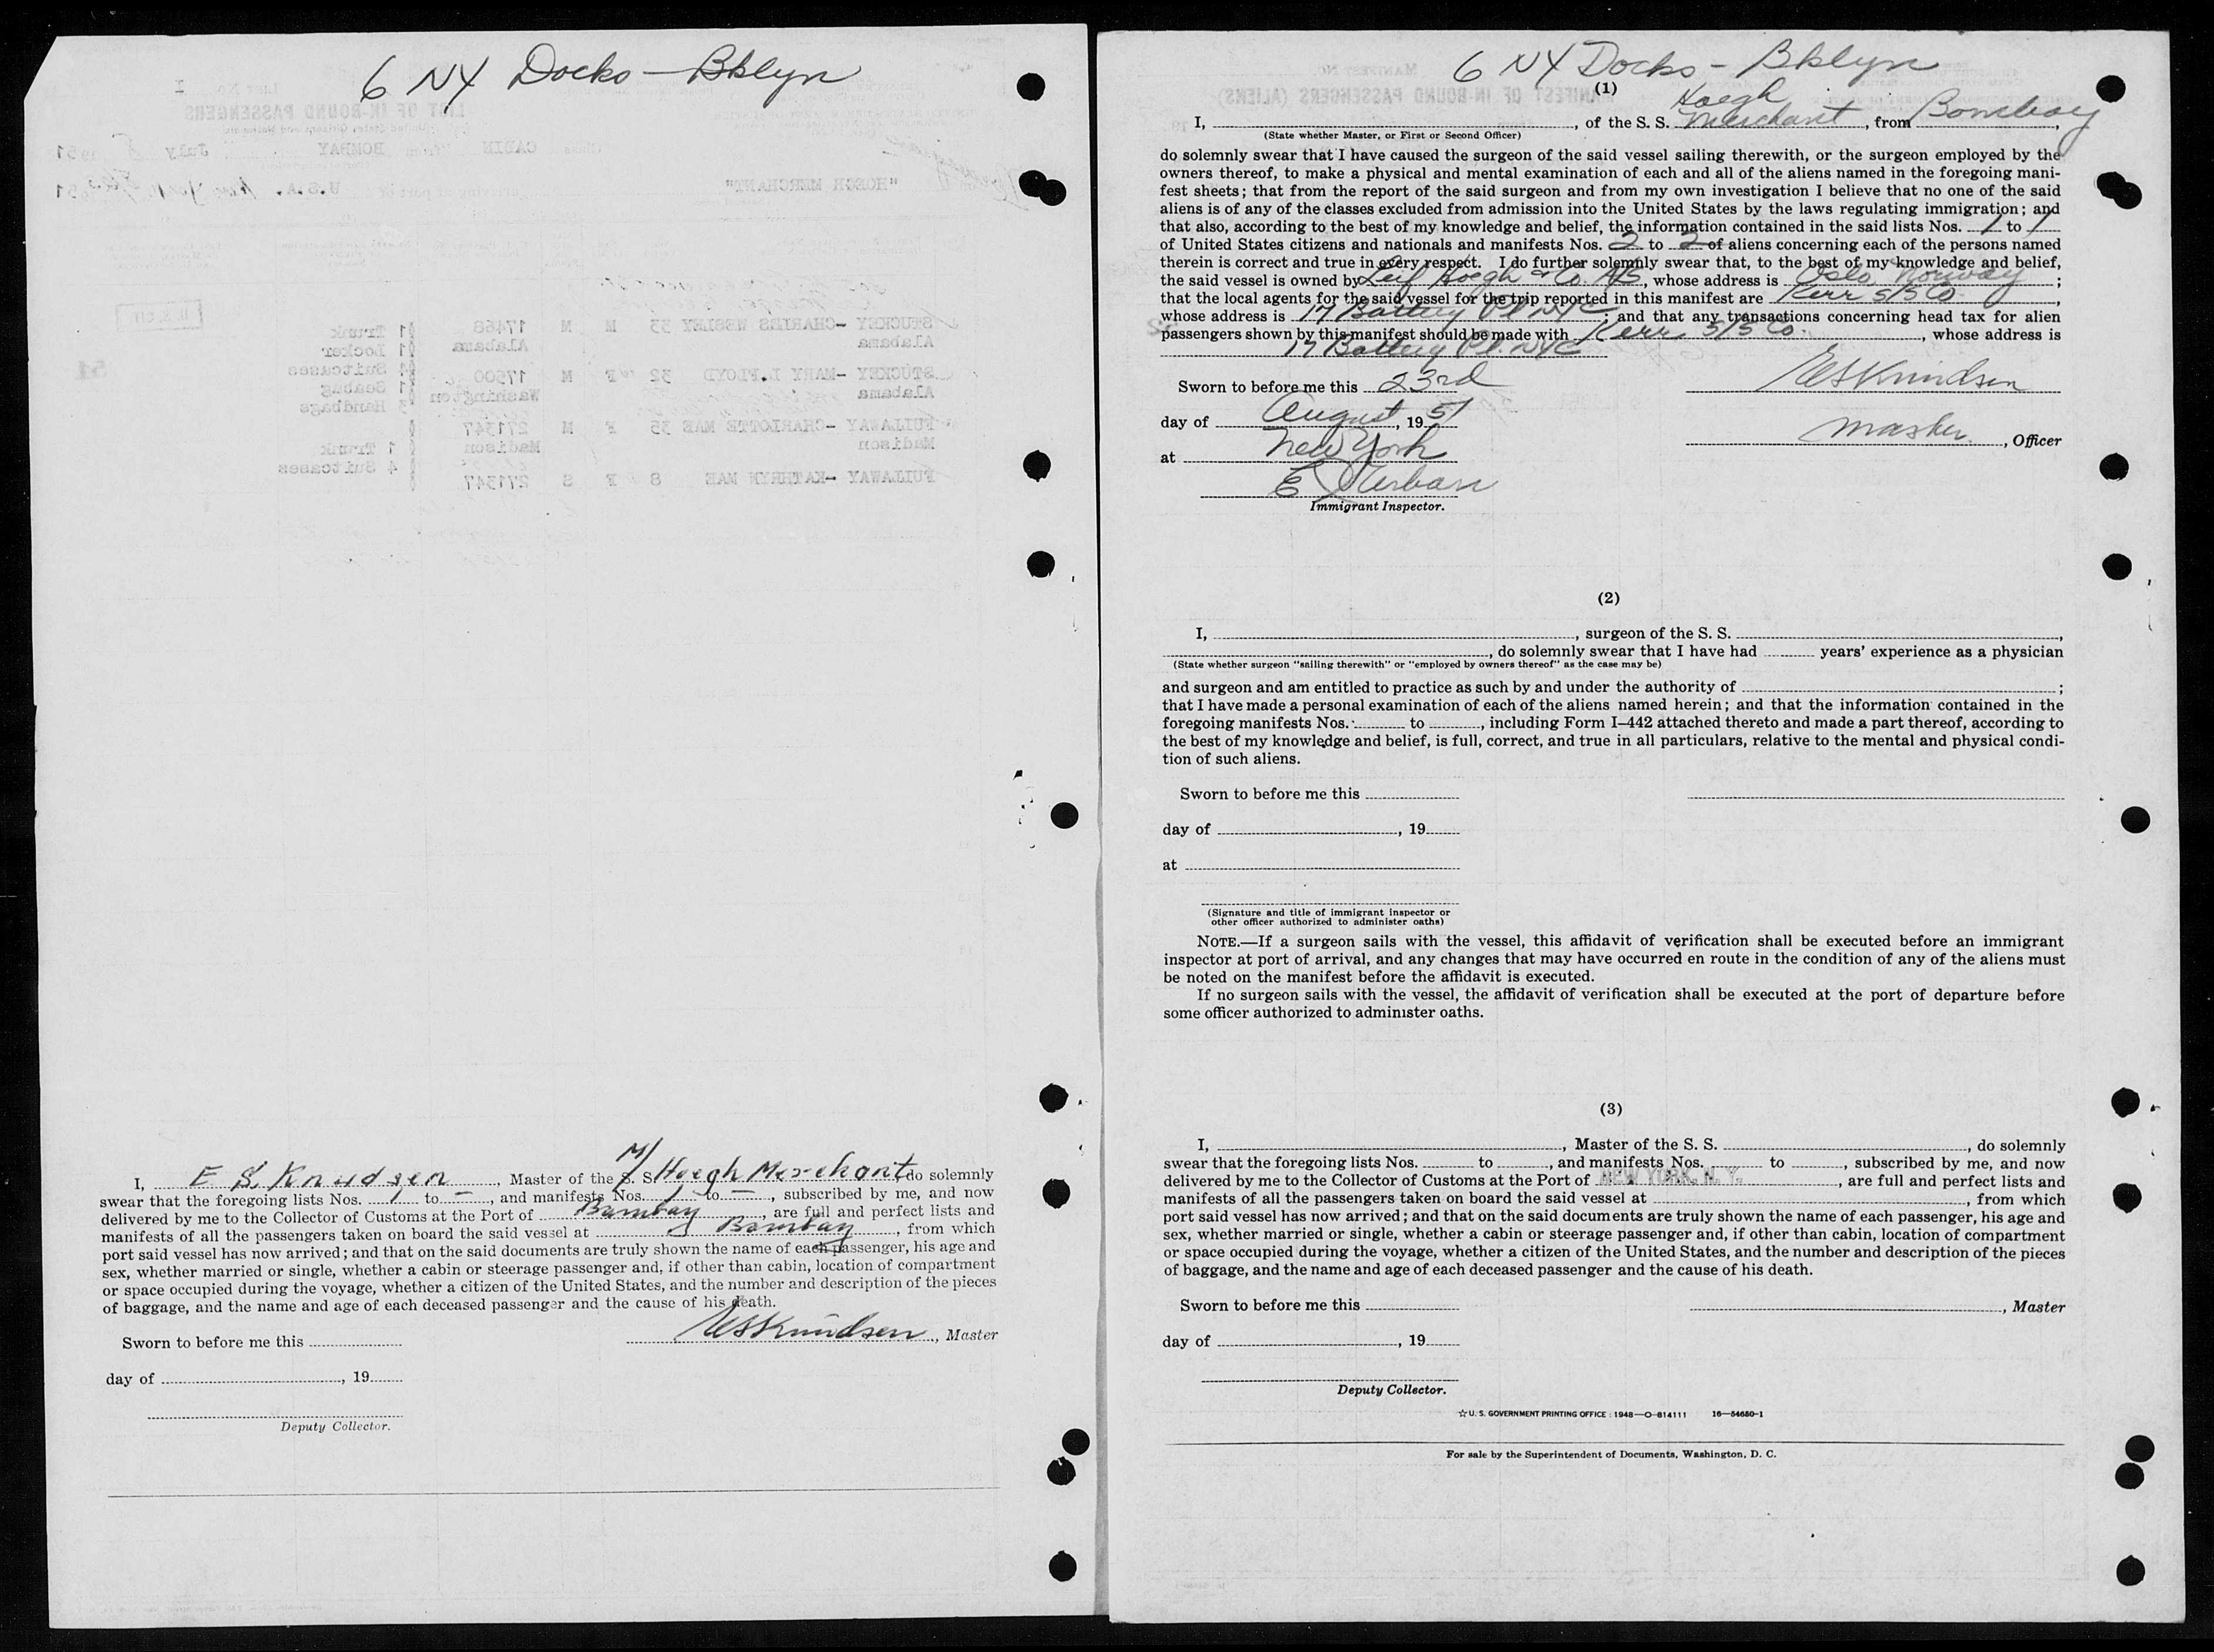 6 NY Docks - Bklyn
I, E S. Knudsen, Master of the M/S. S. Hoegh Merchant, do solemnly
swear that the foregoing lists Nos. 1 to —, and manifests Nos. 1 to —, subscribed by me, and now
delivered by me to the Collector of Customs at the Port of Bombay, are full and perfect lists and
manifests of all the passengers taken on board the said vessel at Bombay, from which
port said vessel has now arrived; and that on the said documents are truly shown the name of each passenger, his age and
sex, whether married or single, whether a cabin or steerage passenger and, if other than cabin, location of compartment
or space occupied during the voyage, whether a citizen of the United States, and the number and description of the pieces
of baggage, and the name and age of each deceased passenger and the cause of his death.
Sworn to before me this
ESKnudsen, Master
day of , 19
Deputy Collector.
6 NY Docks - Bklyn
(1)
Hoegh
I, , of the S. S. Merchant, from Bombay,
(State whether Master, or First or Second Officer)
do solemnly swear that I have caused the surgeon of the said vessel sailing therewith, or the surgeon employed by the
owners thereof, to make a physical and mental examination of each and all of the aliens named in the foregoing mani-
fest sheets; that from the report of the said surgeon and from my own investigation I believe that no one of the said
aliens is of any of the classes excluded from admission into the United States by the laws regulating immigration; and
that also, according to the best of my knowledge and belief, the information contained in the said lists Nos. 1 to 1
of United States citizens and nationals and manifests Nos. 2 to 2 of aliens concerning each of the persons named
therein is correct and true in every respect. I do further solemnly swear that, to the best of my knowledge and belief,
the said vessel is owned by Leif Hoegh & Co. A/S, whose address is Oslo Norway;
that the local agents for the said vessel for the trip reported in this manifest are Kerr S/S Co.,
whose address is 17 Battery Pl NYC; and that any transactions concerning head tax for alien
passengers shown by this manifest should be made with Kerr S/S Co., whose address is
17 Battery Pl. NYC
Sworn to before me this 23rd
ESKnudsen
day of August, 1951
Master, Officer
at New York
E J Urban
Immigrant Inspector.
(2)
I, , surgeon of the S. S. ,
, do solemnly swear that I have had years' experience as a physician
(State whether surgeon "sailing therewith" or "employed by owners thereof" as the case may be)
and surgeon and am entitled to practice as such by and under the authority of ;
that I have made a personal examination of each of the aliens named herein; and that the information contained in the
foregoing manifests Nos. to , including Form I-442 attached thereto and made a part thereof, according to
the best of my knowledge and belief, is full, correct, and true in all particulars, relative to the mental and physical condi-
tion of such aliens.
Sworn to before me this
day of , 19
at
(Signature and title of immigrant inspector or
other officer authorized to administer oaths)
NOTE.—If a surgeon sails with the vessel, this affidavit of verification shall be executed before an immigrant
inspector at port of arrival, and any changes that may have occurred en route in the condition of any of the aliens must
be noted on the manifest before the affidavit is executed.
If no surgeon sails with the vessel, the affidavit of verification shall be executed at the port of departure before
some officer authorized to administer oaths.
(3)
I, , Master of the S. S. , do solemnly
swear that the foregoing lists Nos. to , and manifests Nos. to , subscribed by me, and now
delivered by me to the Collector of Customs at the Port of NEW YORK, N. Y. , are full and perfect lists and
manifests of all the passengers taken on board the said vessel at , from which
port said vessel has now arrived; and that on the said documents are truly shown the name of each passenger, his age and
sex, whether married or single, whether a cabin or steerage passenger and, if other than cabin, location of compartment
or space occupied during the voyage, whether a citizen of the United States, and the number and description of the pieces
of baggage, and the name and age of each deceased passenger and the cause of his death.
Sworn to before me this
, Master
day of , 19
Deputy Collector.
☆ U. S. GOVERNMENT PRINTING OFFICE : 1948—O-814111 16—54650-1
For sale by the Superintendent of Documents, Washington, D. C.